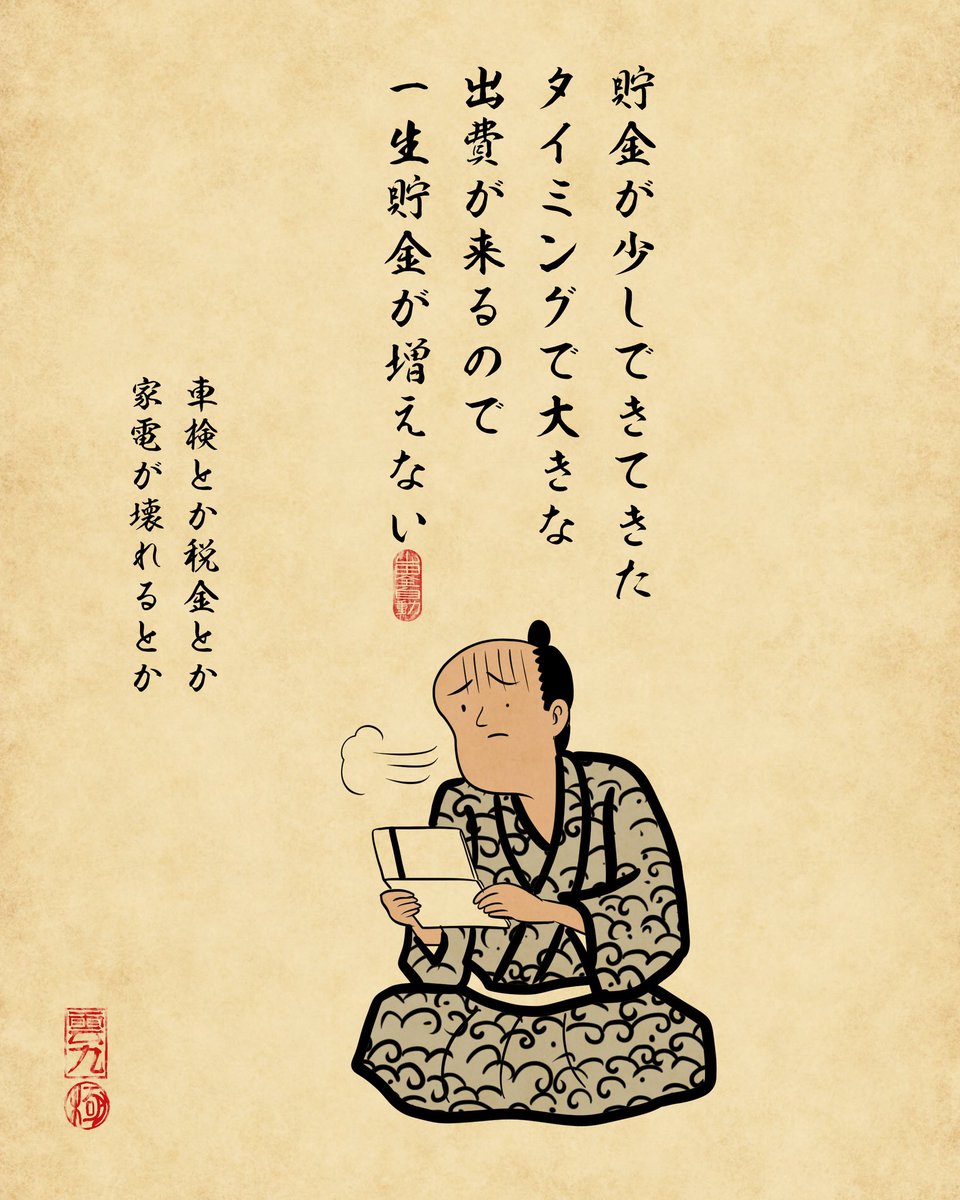 貯金が少しできてきた
タイミングで大きな
出費が来るので
一生貯金が増えない
車検とか税金とか
家電が壊れるとか